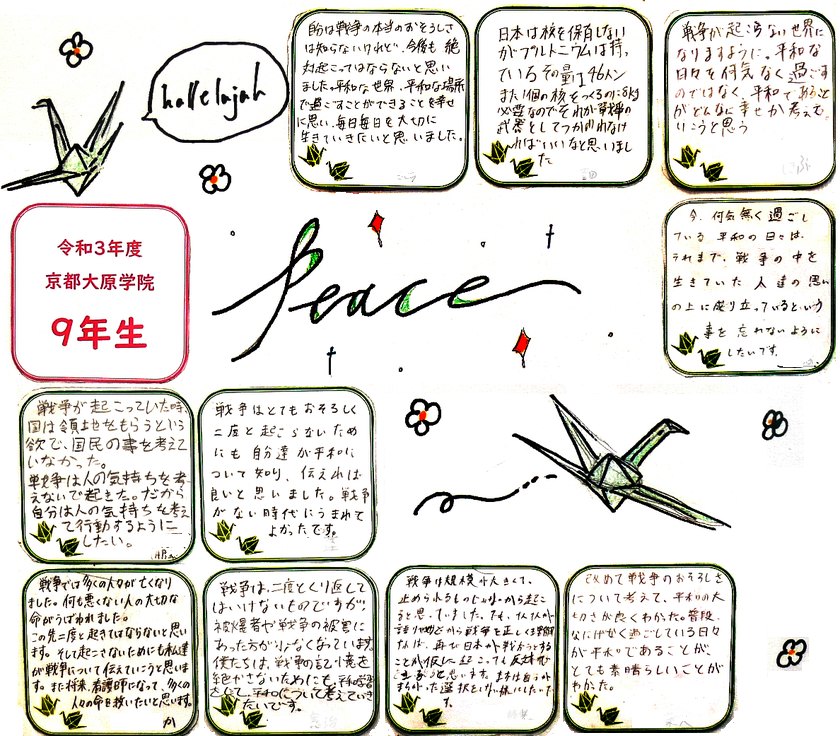 hallelujah
自分は戦争の本当のおそうしさ
は知らないけれど、今後も絶
対起こってはならないと思い
ました。平和な世界、平和な場所
で過ごすことができることを幸せ
に思い、毎日毎日を大切に
生きていきたいと思いました。
日本は核を保有しない
がプルトニウムは持っ
ているその量146トン
また1個の核をつくるのに8kg
必要なのでそれが戦争の
武器としてつかわれなけ
ればいいなと思いまし
た
戦争が起こらない世界に
なりますように。平和な
日々を何気なく過ごす
のではなく、平和であること
がどんなに幸せか考えて
いこうと思う
令和3年度
京都大原学院
9年生
Peace
今、何気無く過ごし
ている平和の日々は、
それまで、戦争の中を
生きていた人達の思い
の上に成り立っているという
事を忘れないように
したいです。
戦争が起こっていた時、
国は領地をもらうという
欲で、国民の事を考えて
いなかった。
戦争は人の気持ちを考
えないで起きた。だから
自分は人の気持ちを考え
て行動するように
したい。
戦争はとてもおそろしく
二度と起こらないため
にも自分達が平和に
ついて知り、伝えれば
良いと思いました。戦争
がない時代にうまれて
よかったです。
戦争では多くの人々が亡くなり
ました。何も悪くない人の大切な
命がうばわれました。
この先二度と起きてはならないと思い
ます。そして起こさないためにも私達
が戦争について伝えていこうと思いま
す。また将来、看護師になって、多くの
人々の命を救いたいと思います。
戦争は、二度とくり返して
はいけないものですが、
被爆者や戦争の被害に
あった方が少なくなっています。
僕たちは、戦争の記憶を
絶やさないためにも、平和学習
を通して、平和について考えていき
たいです。
戦争は規模が大きくて、
止められうもの
と思っていました。でも、
戦争を正しく
な、再び日本が戦おうとする
ことが仮に起こっても反対
と思います。
選択をし
す。
改めて戦争のおそろしさ
について考えて、平和の大
切さが良くわかった。普段、
なにげなく過ごしている日々
が平和であることが、
とても素晴らしいことが
わかった。